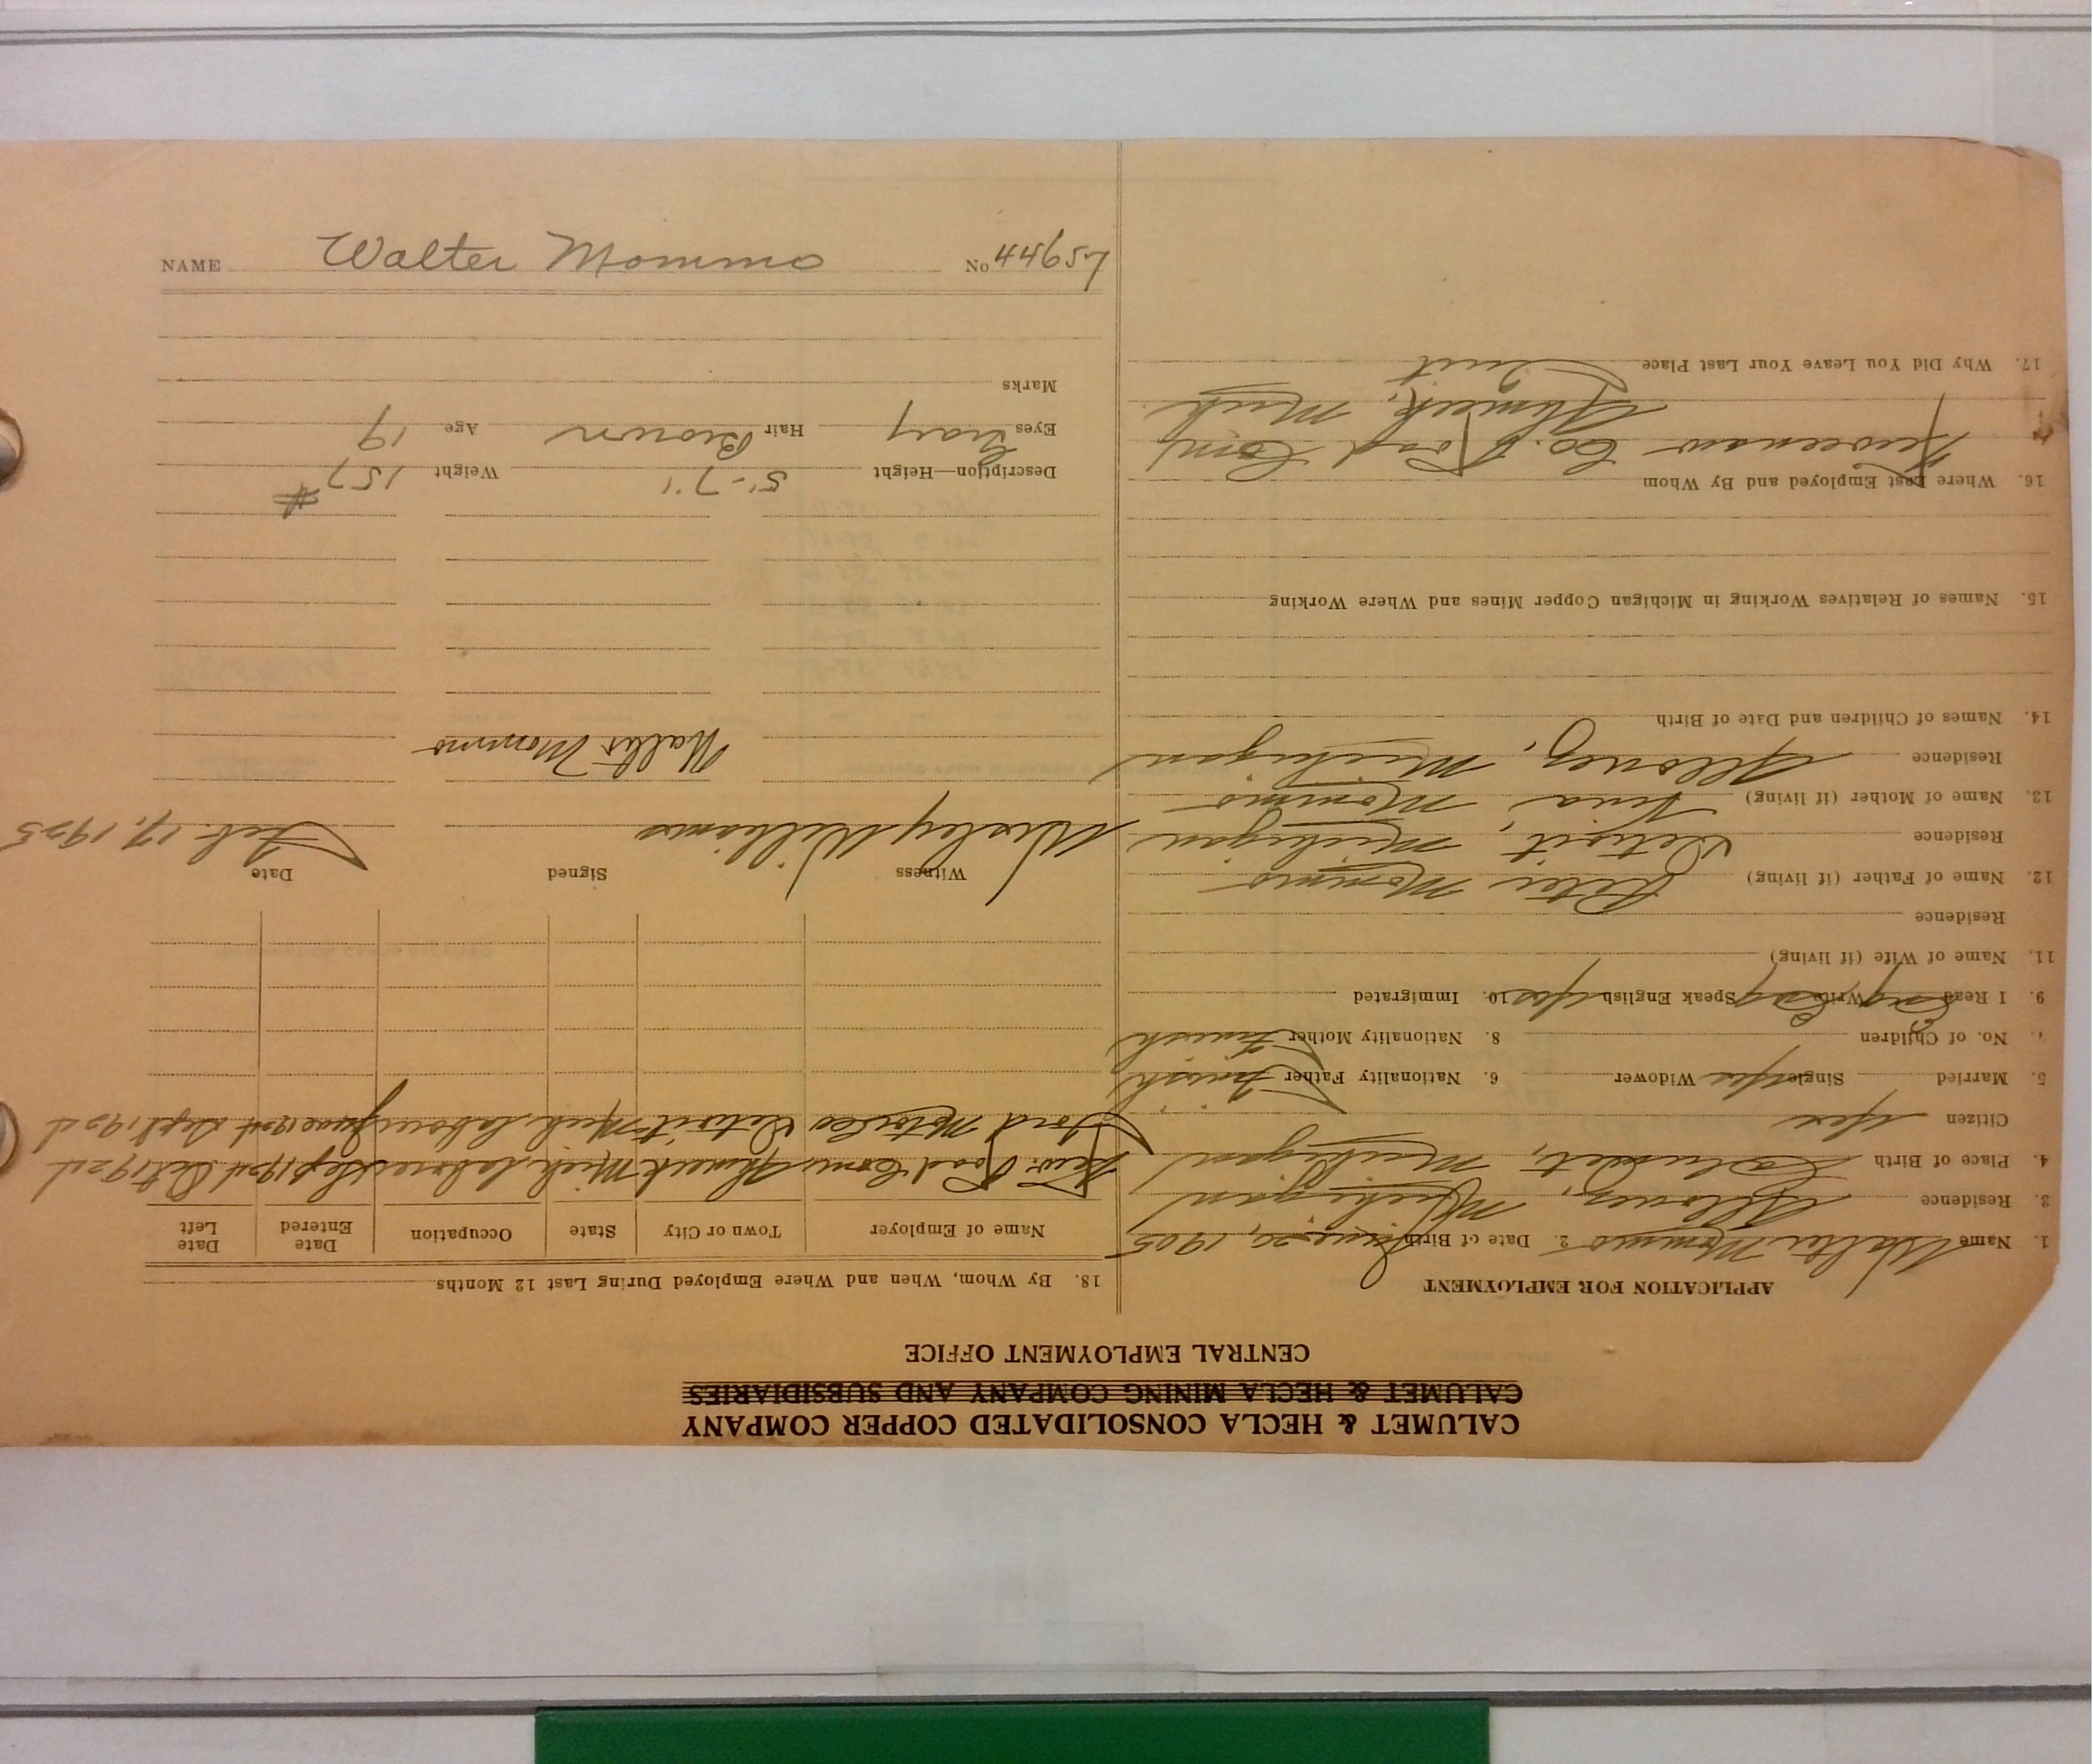 CALUMET & HECLA CONSOLIDATED COPPER COMPANY
CALUMET & HECLA MINING COMPANY AND SUBSIDIARIES
CENTRAL EMPLOYMENT OFFICE
APPLICATION FOR EMPLOYMENT
1. Name Walter Mommo 2. Date of Birth June 20, 1905
3. Residence Allouez, Michigan
4. Place of Birth Calumet, Michigan
Citizen Yes
5. Married Single Yes Widower 6. Nationality Father Finnish
7. No. of Children 8. Nationality Mother Finnish
9. I Read Eng Write Eng Speak English Yes 10. Immigrated
11. Name of Wife (if living)
Residence
12. Name of Father (if living) Peter Mommo
Residence Detroit, Michigan
13. Name of Mother (if living) Mommo
Residence Allouez, Michigan
14. Names of Children and Date of Birth
15. Names of Relatives Working in Michigan Copper Mines and Where Working
16. Where Last Employed and By Whom
Keweenaw Co. Road Com,
Ahmeek, Mich
17. Why Did You Leave Your Last Place Quit
18. By Whom, When and Where Employed During Last 12 Months
Name of Employer Town or City State Occupation Date Entered Date Left
Kew. Road Com. Ahmeek Mich. Laborer Sep 1924 Oct 1924
Ford Motor Co Detroit Mich. Laborer June 1924 Sept. 1924
Witness Signed Date
Wesley Williams Feb. 17, 1925
Walter Mommo
Description—Height 5'-7" Weight 157 #
Eyes Gray Hair Brown Age 19
Marks
NAME Walter Mommo No. 44657